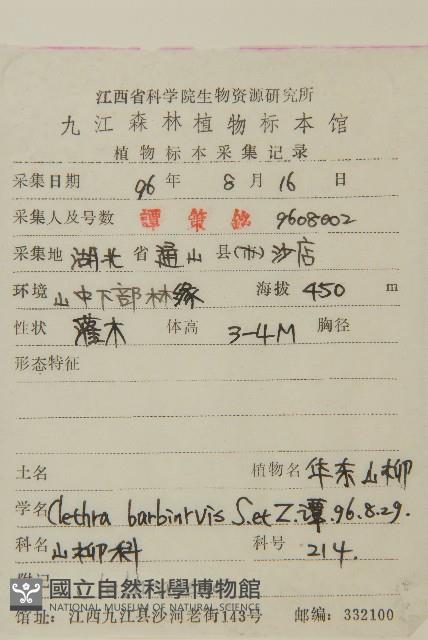 江西省科学院生物资源研究所
九江森林植物标本馆
植物标本采集记录
采集日期 96 年 8 月 16 日
采集人及号数 譚策銘 9608002
采集地 湖北 省 通山 县(市) 沙店
环境 山中下部林缘 海拔 450 m
性状 灌木 体高 3-4M 胸径
形态特征
土名 植物名 华东山柳
学名 Clethra barbinrvis S.et Z. 谭.96.8.29.
科名 山柳科 科号 214.
附记
國立自然科學博物館
NATIONAL MUSEUM OF NATURAL SCIENCE
馆址:江西九江县沙河老街143号 邮编:332100